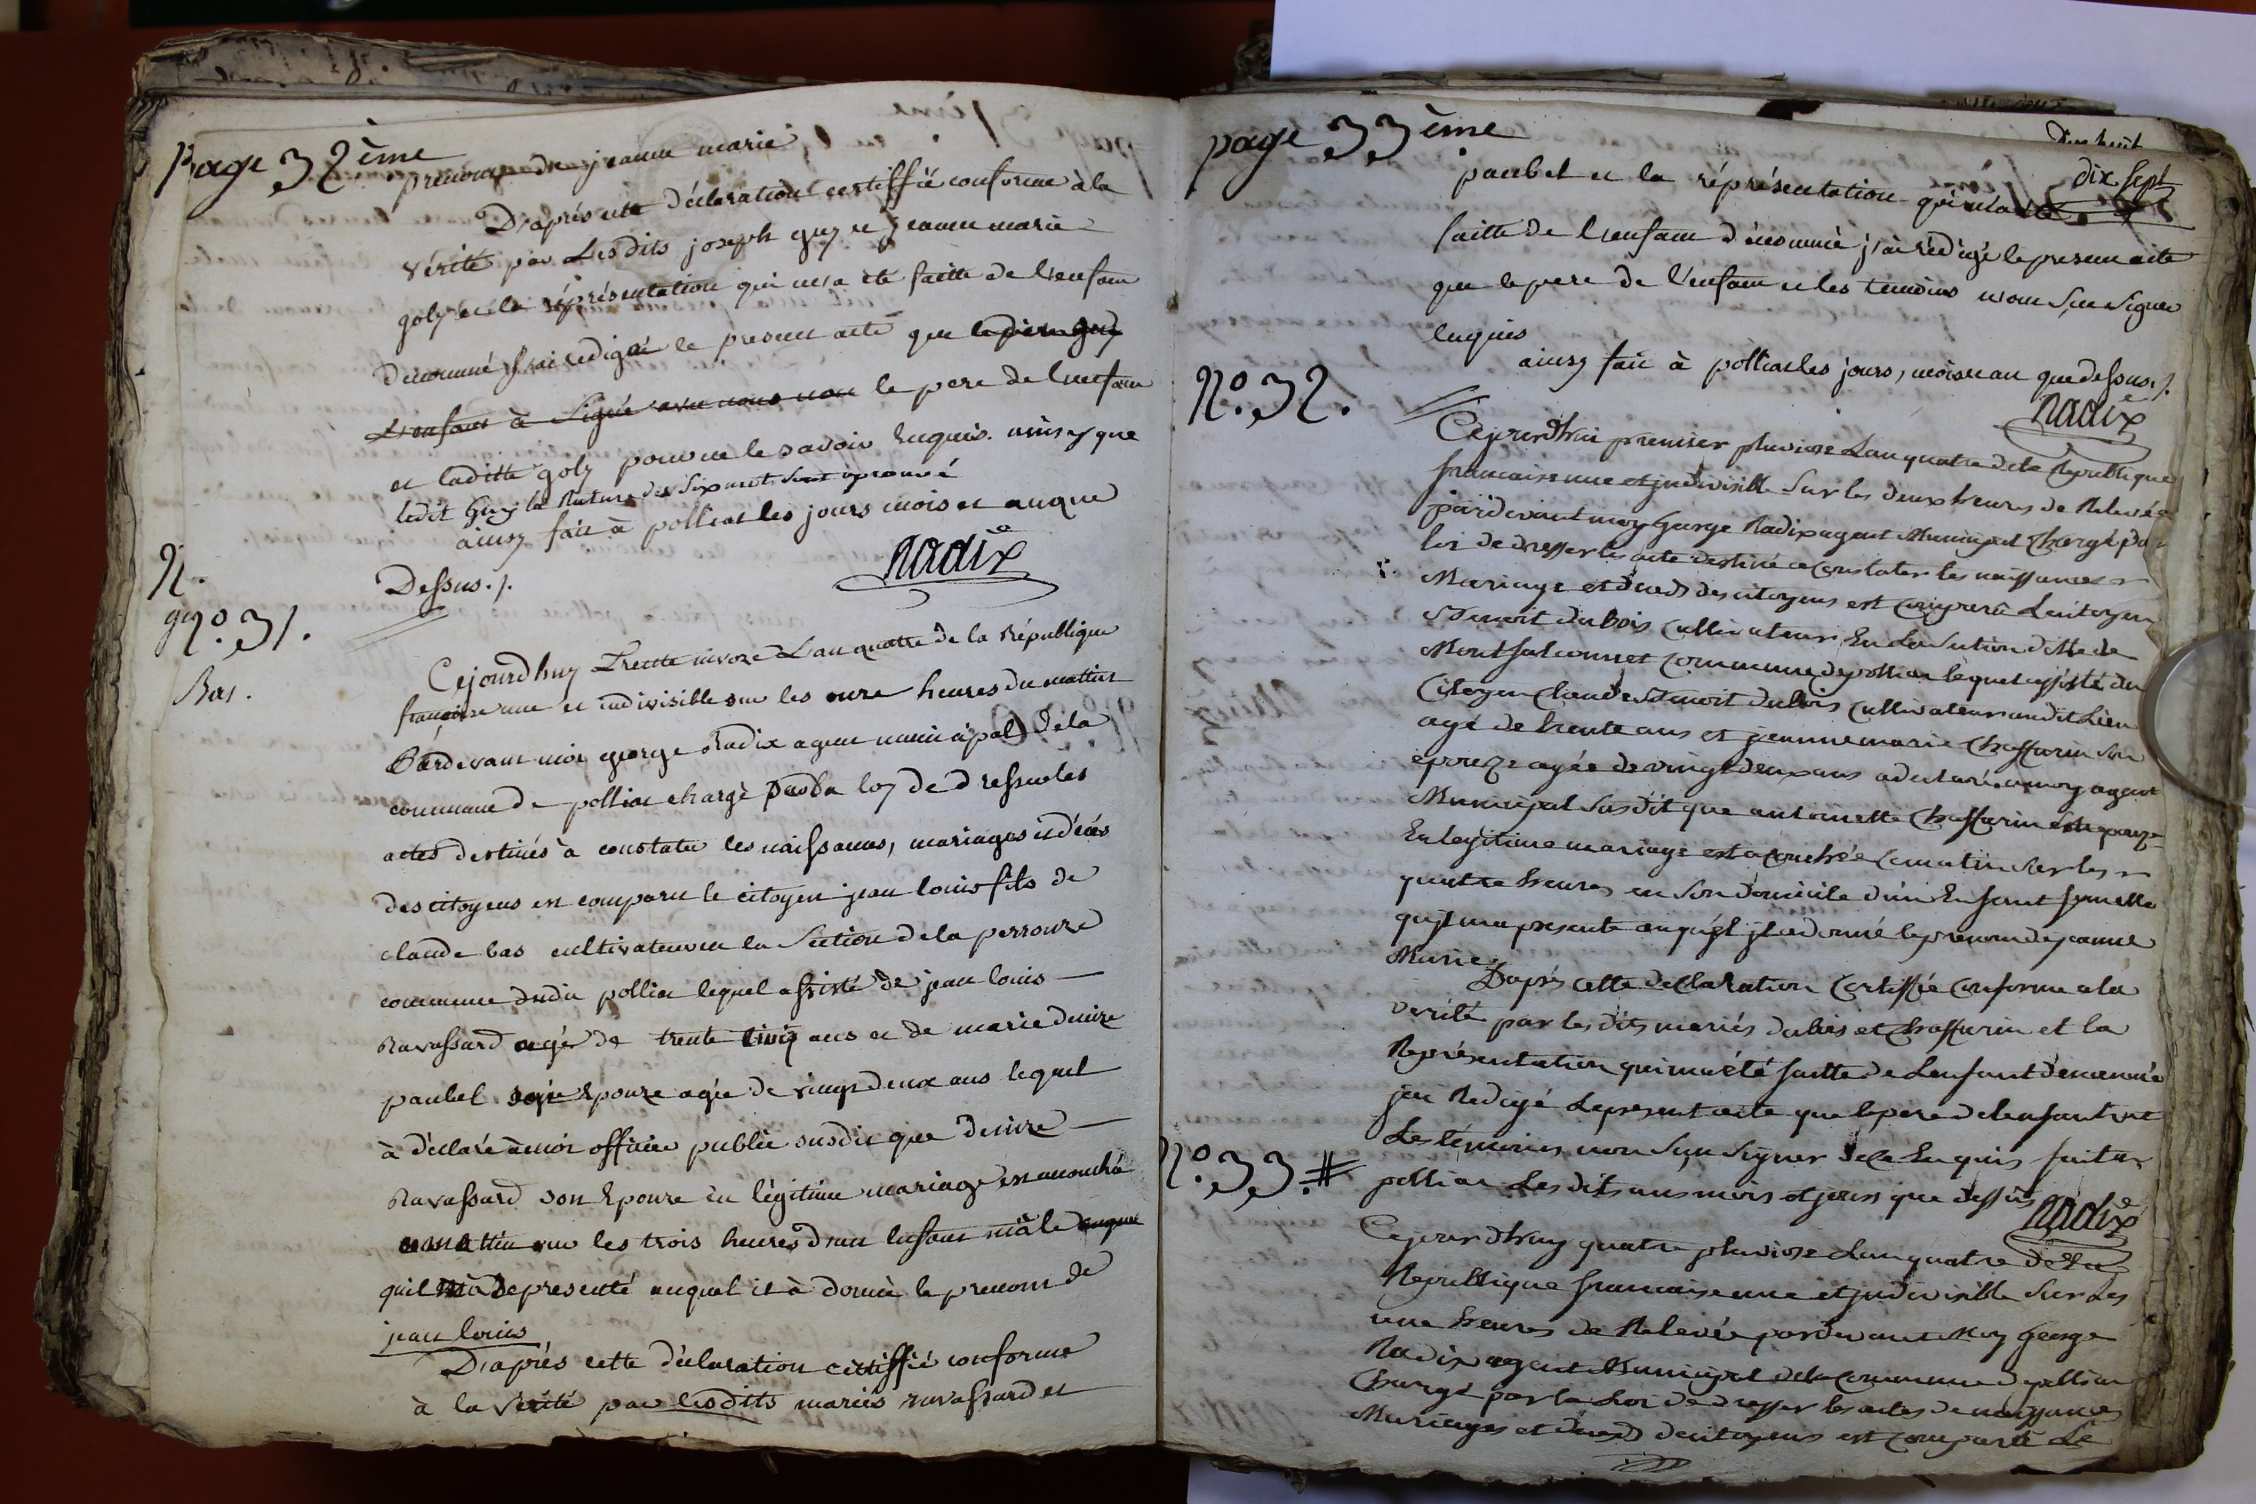 Page 32ème
prenom de jeanne marie
D'aprés cette déclaration certiffié conforme à la
vérité par Lesdits joseph guy et jeanne marie
goly et la réprésentation qui m'a été faitte de l'enfant
dénommé j'ai redigé le present acte que le pere guy
L'enfant à Signé avec nous non le pere de l'enfant
et laditte goly pour ne le savoir Enquis. ainsy que
ledit Guy la Rature des Six mots Sont aprouvé
ainsy fait à polliat les jours mois et an que
Dessus ./.
Nadix
N.
gu
N.o 31.
Bas.
Cejourd'huy Trente nivoze L'an quatre de la République
françoise une et indivisible sur les onze heures du mattin
Pardevant moi george Radix agent municipal de la
commune de polliat chargé par la loy de dresser les
actes destinés à constater les naissances, mariages et décés
des citoyens est comparu le citoyen jean louis fils de
claude bas cultivateur en la Section de la perrouze
commune dudit polliat lequel assisté de jean louis
Ravassard agé de trente cinq ans et de marie denize
paubel son Epouze agée de vingt deux ans lequel
à déclaré à moi officier public susdit que denize
Ravassard son Epouze en légitime mariage est accouché
ce mattin sur les trois heures d'un Enfant mâle
qu'il m'a presenté auquel il à donné le prenom de
jean louis
D'aprés cette déclaration certiffié conforme
à la verité par lesdits mariés ravassard et
page 33ème
Dix huit
dix Sept
paubel et la réprésentation qui m'a été
faitte de l'enfant dénommé j'ai rédigé le present acte
que le pere de l'enfant et les temoins n'ont Sçu Signer
enquis
ainsy fait à polliat les jours, mois et an que dessus ./.
Nadix
N.o 32.
Cejourd'hui premier pluviose L'an quatre de la Republique
francaise une et jndivisible Sur les deux heures de Relevée
pardevant moy George Radix agent Municipal chargé par
loi de dresser les acte destiné a Constater les naissances
Mariage et décéds des citoyens est Comparu Le citoyen
Benoit dubois Cultivateur En La Section ditte de
Montfalconnet Commune de polliat lequel assisté du
Citoyen Claude Benoit Dubois Cultivateur audit Lieu
agé de trente ans et jeanne marie Chaffurin son
epouze agée de vingt deux ans a declaré a moy agent
Municipal Susdit que antoinette Chaffurin son epouze
En legitime mariage est acouchée Ce matin Sur les
quatre heures en Son domicile d'un Enfant femelle
qu'jl ma presente auquél jl a donné le prenom de jeanne
Marie.
D'après cette declaration Certiffié Conforme a la
verité par les dits mariés dubois et chaffurin et la
Représentation qui ma été faitte de L'enfant dénommée
jai Redigé Le present acte que le pere de lenfant et
Les témoins n'on Sçu Signer de Ce Enquis fait a
polliat Les dits ans mois et jours que dessus
Nadix
N.o 33. #
Cejourd'huy quatre pluviose L'an quatre de La
Republique francaise une et jndivisible Sur Les
une heures de Relevée pardevant Moy George
Radix agent Municipal de la Commune de polliat
Chargé par la Loi de dresser les actes de naissances
Mariages et décéds de citoyens est Comparu Le